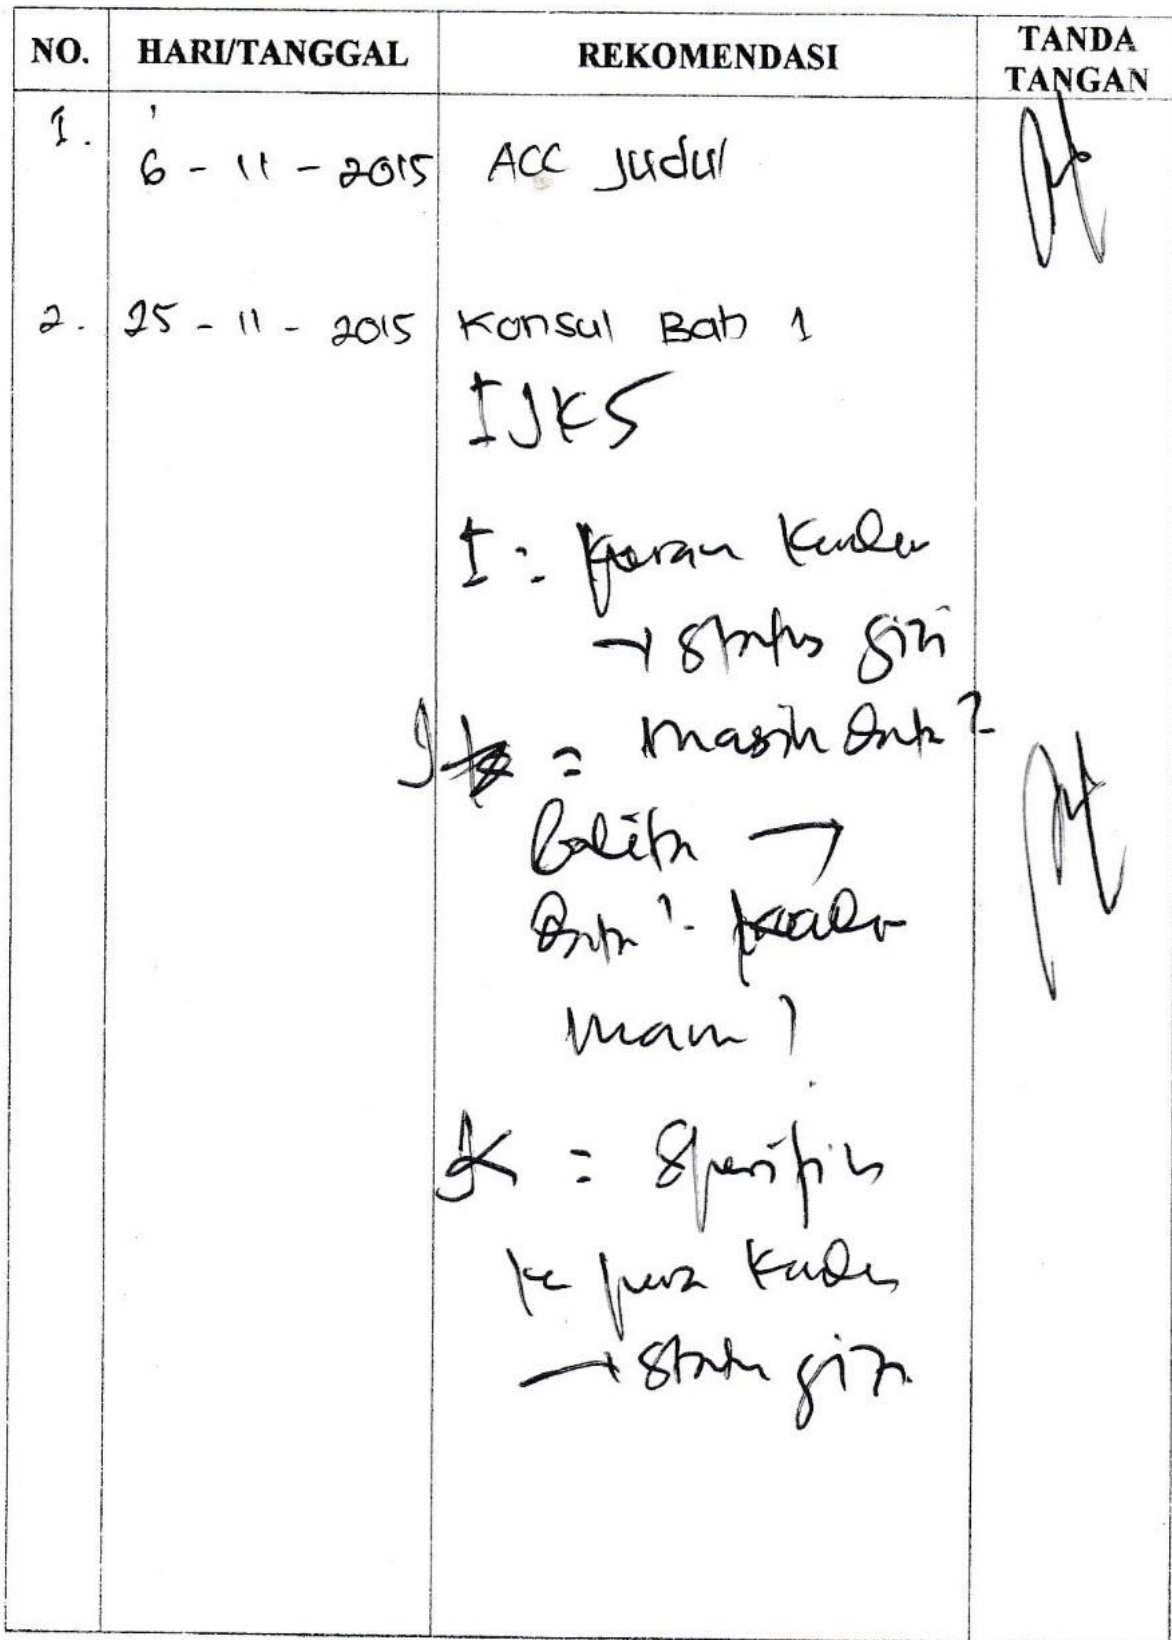 NO. HARI/TANGGAL REKOMENDASI TANDA TANGAN
1. 6 - 11 - 2015 ACC Judul
2. 25 - 11 - 2015 Konsul Bab 1
IJKS
I : peran Kader
→ status gizi
J = masih
balita →
mana ?
K = Spesifik
ke peran Kader
→ status gizi